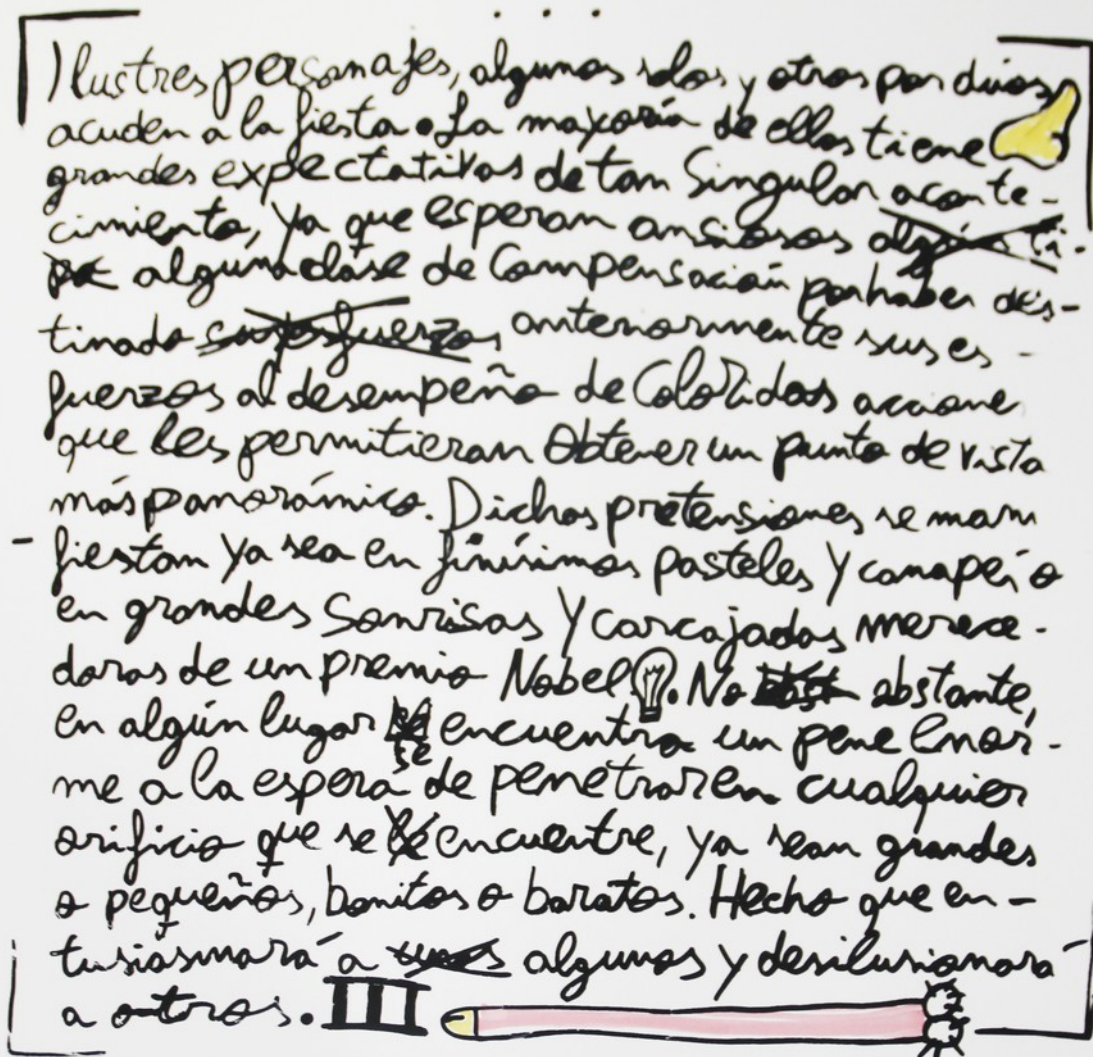 Ilustres personajes, algunos solos y otros por dúos
acuden a la fiesta. La mayoría de ellos tiene
grandes expectativas de tan singular aconte-
cimiento, ya que esperan ansiosos algún ti-
po alguna clase de compensación por haber des-
tinado sus esfuerzos anteriormente sus es-
fuerzos al desempeño de coloridas accione
que les permitieran obtener un punto de vista
más panorámico. Dichas pretensiones se mani
fiestan ya sea en finísimos pasteles y canapés o
en grandes sonrisas y carcajadas merece-
doras de un premio Nobel. No obstante,
en algún lugar se encuentra un pene enor-
me a la espera de penetrar en cualquier
orificio que se encuentre, ya sean grandes
o pequeños, bonitos o baratos. Hecho que en-
tusiasmará a unos algunos y desilusionará
a otros. III